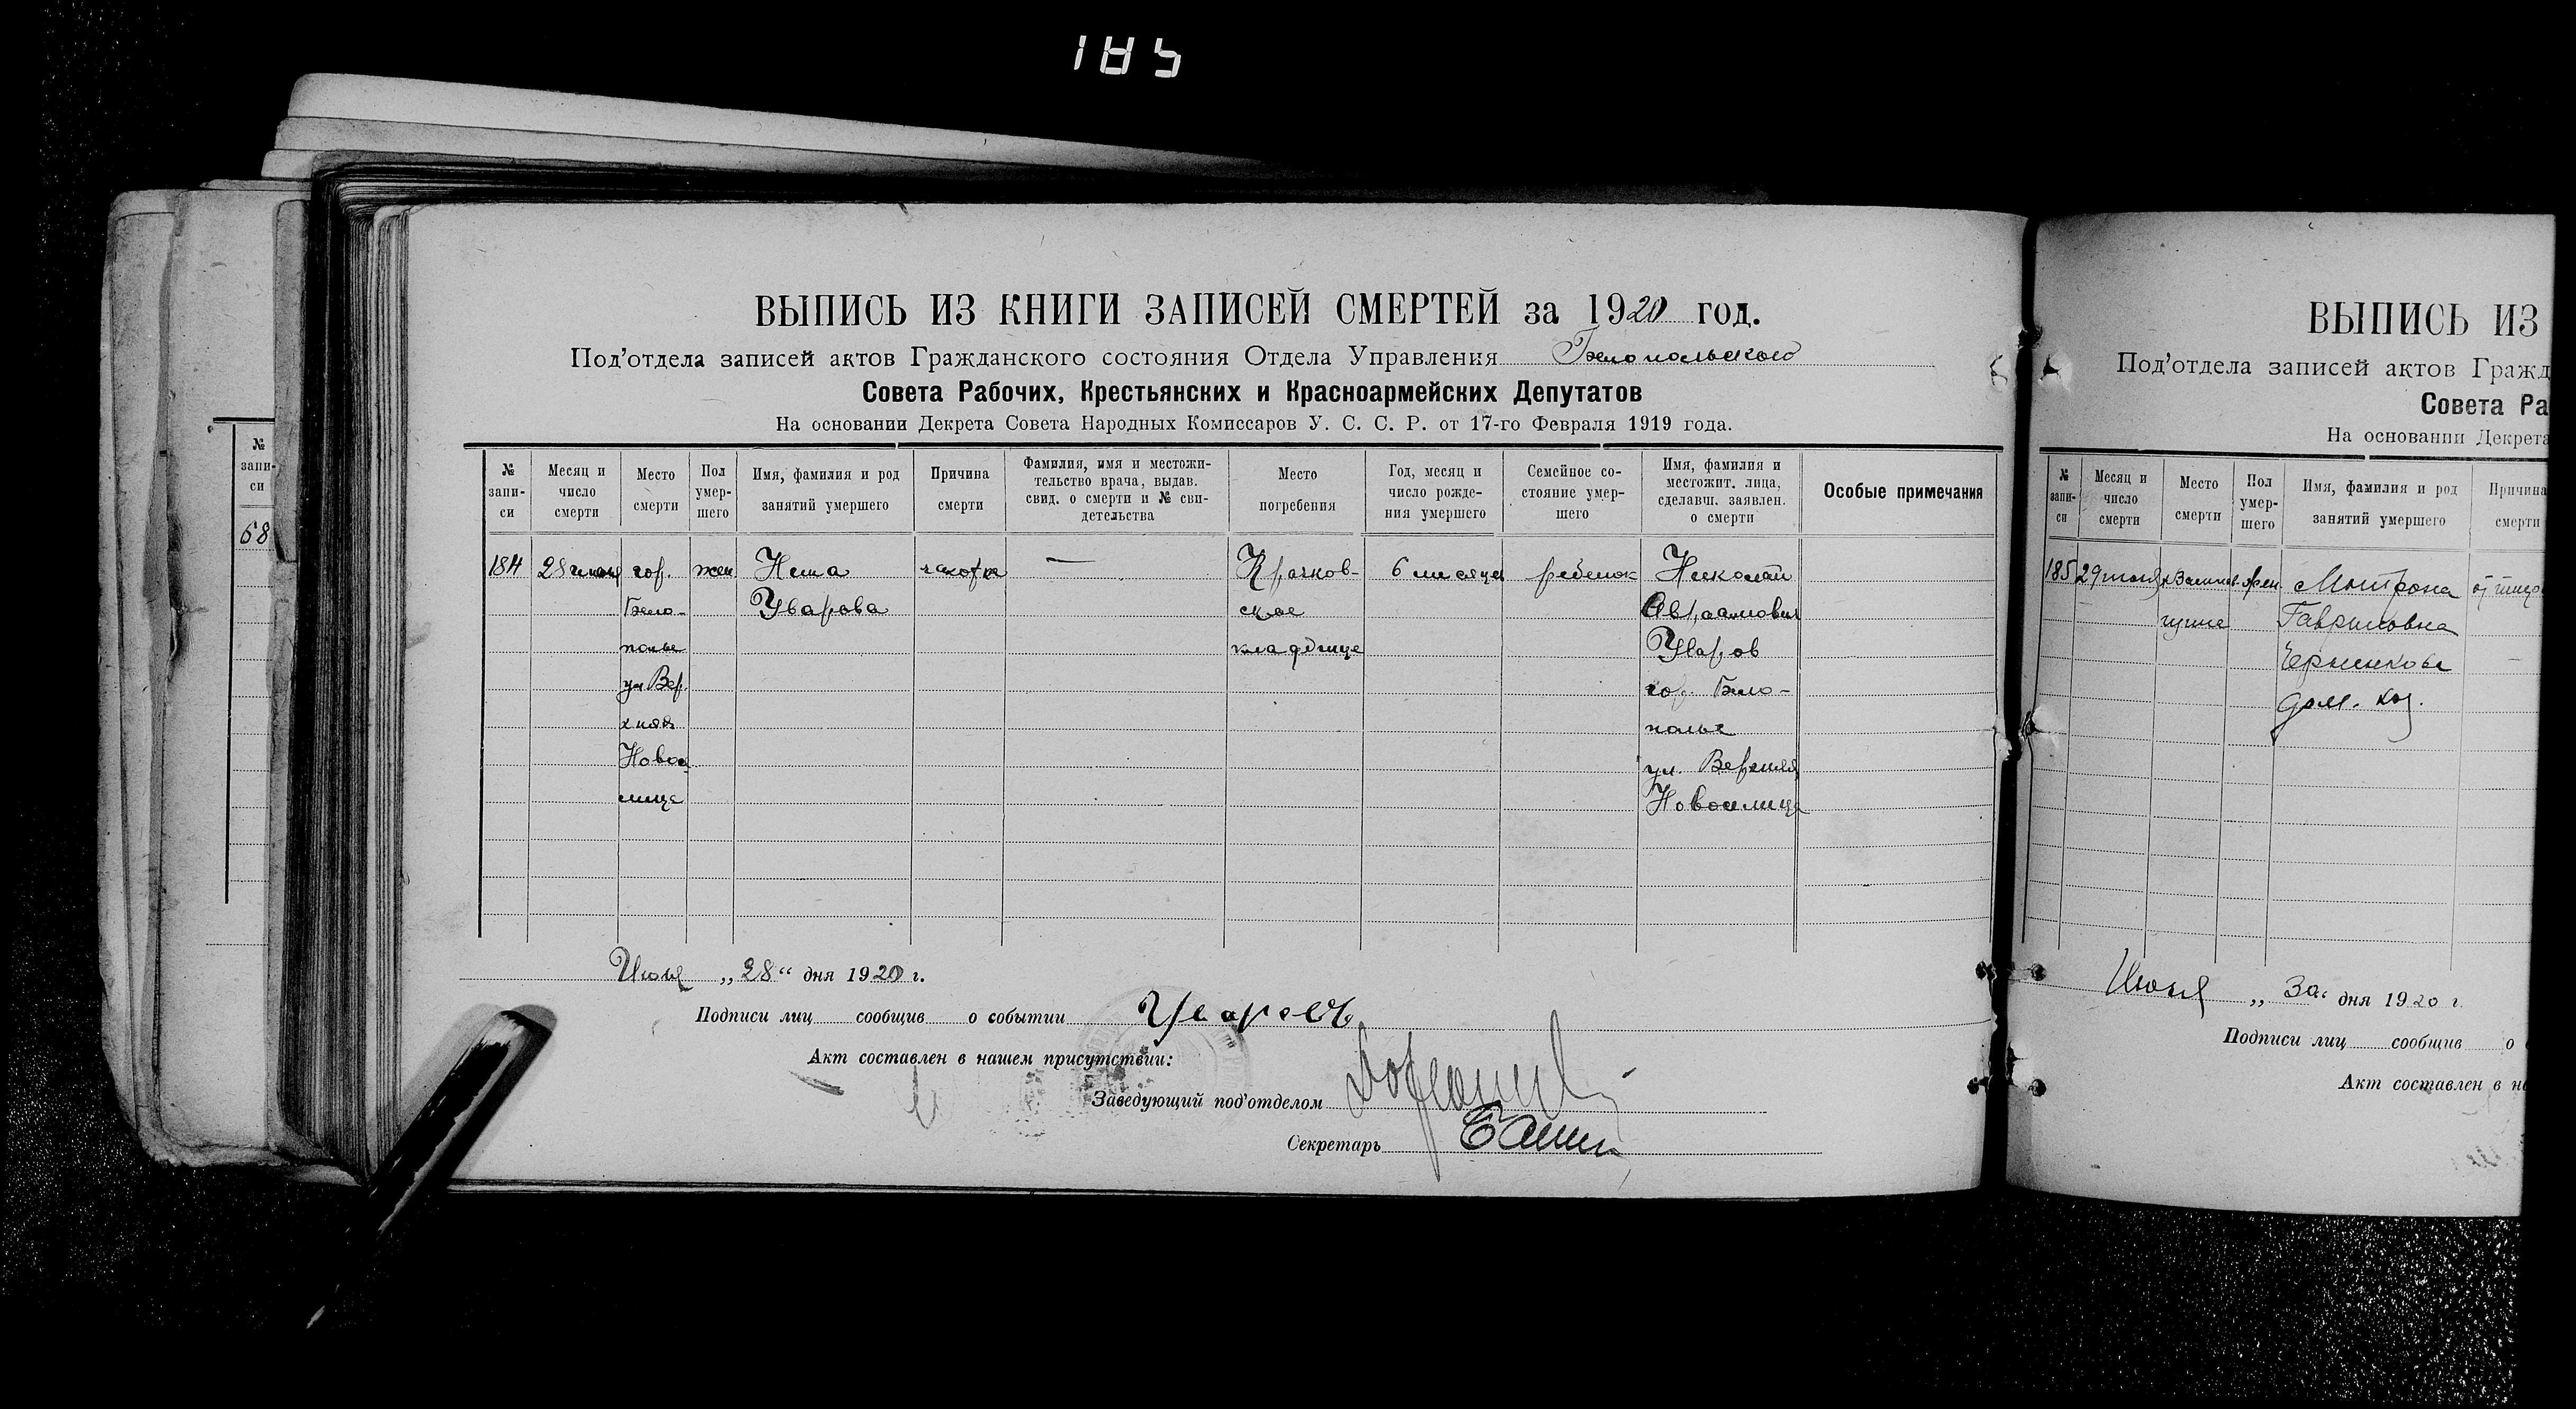 185
ВЫПИСЬ ИЗ КНИГИ ЗАПИСЕЙ СМЕРТЕЙ за 1920 год.
Под'отдела записей актов Гражданского состояния Отдела Управления Белопольского
Совета Рабочих, Крестьянских и Красноармейских Депутатов
На основании Декрета Совета Народных Комиссаров У. С. С. Р. от 17-го Февраля 1919 года.
№ запи- си
Месяц и число смерти
Место смерти
Пол умер- шего
Имя, фамилия и род занятий умершего
Причина смерти
Фамилия, имя и местожи- тельство врача, выдав. свид. о смерти и № сви- детельства
Место погребения
Год, месяц и число рожде- ния умершего
Семейное со- стояние умер- шего
Имя, фамилия и местожит. лица, сделавш. заявлен. о смерти
Особые примечания
184
28 июня
гор.
Бело-
полье
ул Вер.
хняя
Новос
лица
жен
Нина
Уварова
чахотка
—
Крачков-
ское
кладбище
6 месяцев
ребенок
Николай
Авраамович
Уваров
гор. Бело-
полье
ул. Верхняя
Новоселица
Июня „28“ дня 1920 г.
Подписи лиц сообщив о событии Уваровъ
Акт составлен в нашем присутствии:
Заведующий под'отделом
Секретарь
№
запи-
си
68
ВЫПИСЬ ИЗ
Под'отдела записей актов Гражд
Совета Ра
На основании Декрета
№ запи- си
Месяц и число смерти
Место смерти
Пол умер- шего
Имя, фамилия и род занятий умершего
Причина смерти
185
29 июня
жен.
Митрона
Гавриловна
дом. хоз.
Июня „30“ дня 1920 г.
Подписи лиц сообщив о
Акт составлен в н